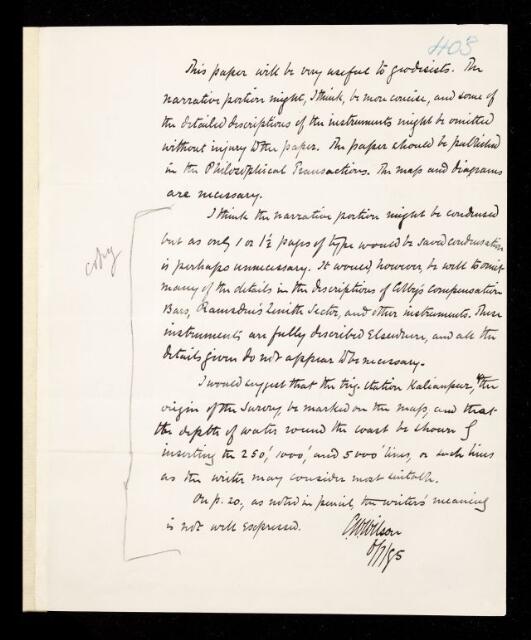 403
This paper will be very useful to geodisists. The
narrative portion might, I think, be more concise, and some of
the detailed descriptions of the instruments might be omitted
without injury to the paper. The paper should be published
in the Philosophical Transactions. The map and diagrams
are necessary.
I think the narrative portion might be condensed
but as only 1 or 1½ pages of type would be saved condensation
is perhaps unnecessary. It would, however be well to omit
many of the details in the descriptions of Colby's Compensation
Bars, Ramsden's Zenith Sector, and other instruments. These
instruments are fully described Elsewhere, and all the
details given do not appear to be necessary.
copy
I would suggest that the trig. station Kalianpur, the
origin of the Survey, be marked on the map, and that
the depth of water round the coast be shown by
inserting the 250', 1000', and 5000' lines, or such lines
as the writer may consider most suitable.
On p. 20, as noted in pencil, the writers' meaning
is not well expressed.
C W Wilson
6/7/85